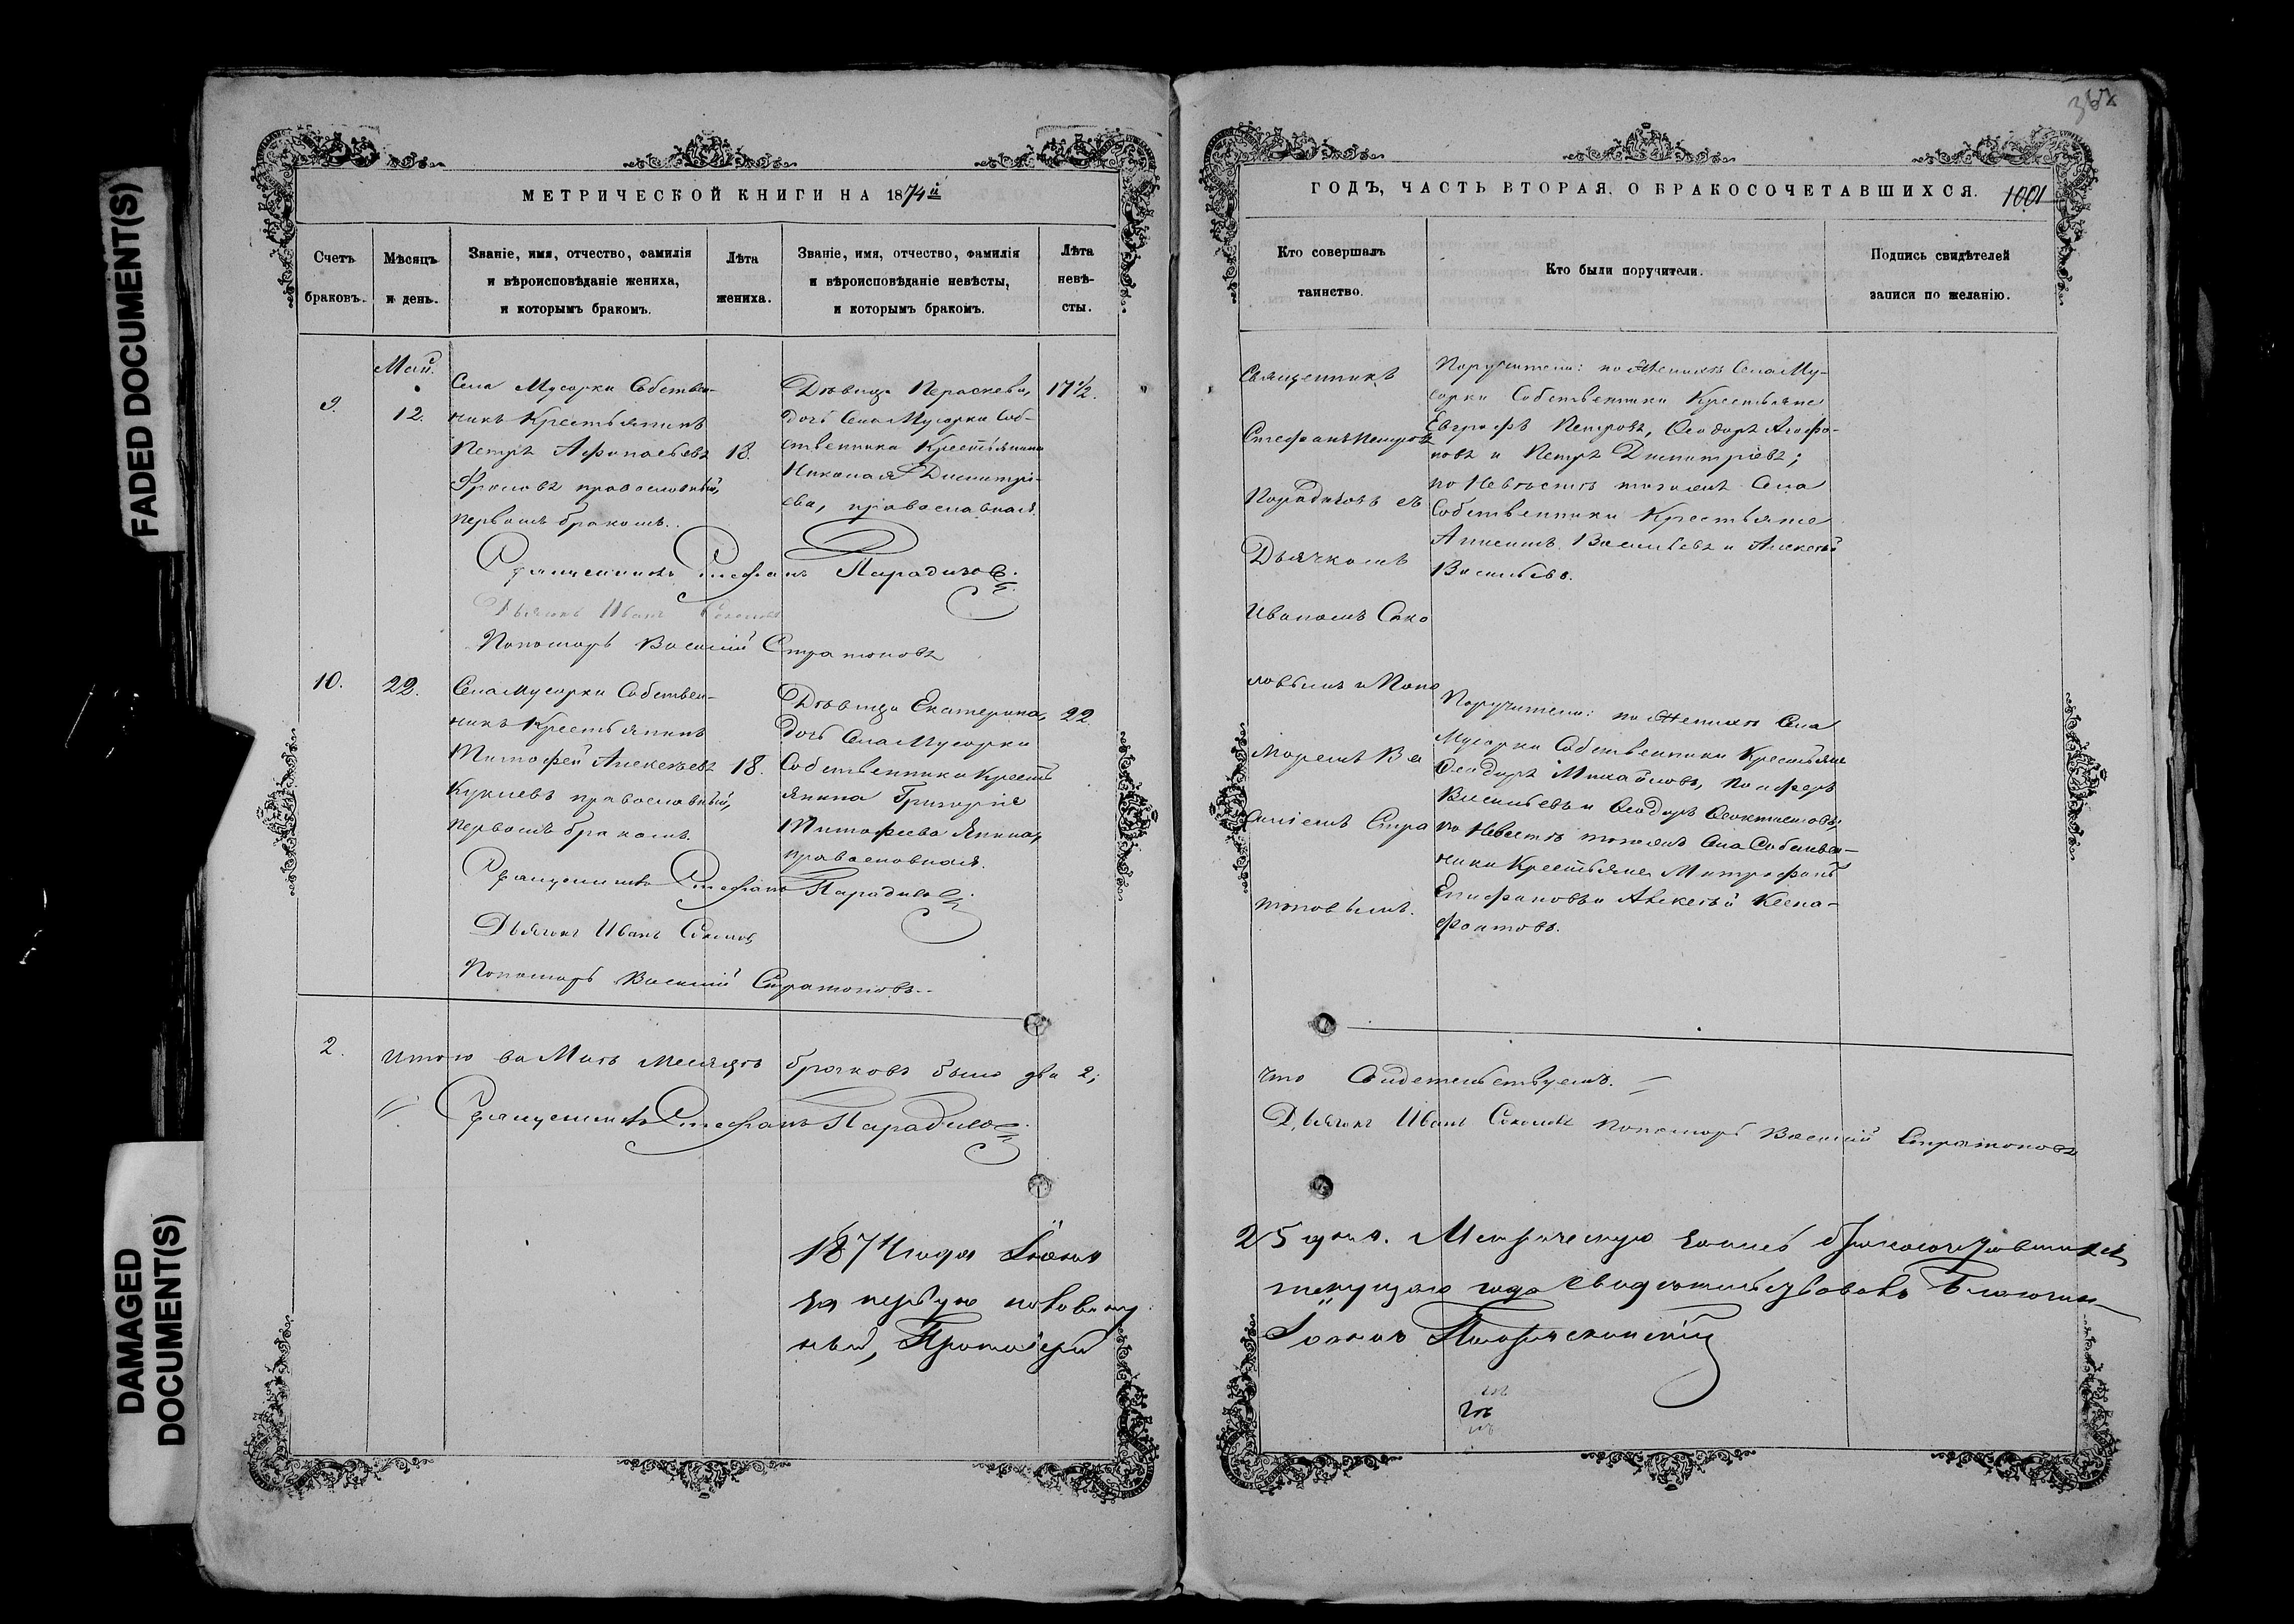 FADED DOCUMENT(S)
DAMAGED
DOCUMENT(S)
МЕТРИЧЕСКОЙ КНИГИ НА 1874й
Счетъ
браковъ.
Мѣсяцъ
и день.
Званіе, имя, отчество, фамилія
и вѣроисповѣданіе жениха,
и которымъ бракомъ.
Лѣта
жениха.
Званіе, имя, отчество, фамилія
и вѣроисповѣданіе невѣсты,
и которымъ бракомъ.
Лѣта
невѣ-
сты.
9.
Май.
12.
Села Мусорки Собствен-
никъ Крестьянинъ
Петръ Афанасьевъ
Фроловъ православный,
первымъ бракомъ.
18.
Дѣвица Параскева,
дочь Села Мусорки Соб-
ственника Крестьянина
Николая Димитрі-
ева, православная.
17 1/2.
Священникъ Стефанъ Парадизов
Дьячокъ Иванъ Соколовъ
Пономарь Василій Стратоновъ
10.
22.
Села Мусорки Собствен-
никъ Крестьянинъ
Тимофей Алексѣевъ
Куклевъ православный,
первымъ бракомъ.
18.
Дѣвица Екатерина,
дочь Села Мусорки
Собственника Кресть
янина Григорія
Тимофеева Янина,
православная.
22
Священникъ Стефанъ Парадизов
Дьячокъ Иванъ Соколов
Пономарь Василій Стратоновъ.
2.
Итого въ Маѣ месяцѣ браковъ было два 2;
Священникъ Стефанъ Парадизов
1874 года Іюня
за первую половину
ный, Протоіерей
ГОДЪ, ЧАСТЬ ВТОРАЯ, О БРАКОСОЧЕТАВШИХСЯ.
1001
Кто совершалъ
таинство.
Кто были поручители.
Подпись свидѣтелей
записи по желанію.
Священникъ
Стефанъ Петровъ
Парадизовъ съ
Дьячкомъ
Иваномъ Соко
ловымъ и Поно
моремъ Ва
силіемъ Стра
тоновымъ.
Поручители: по Женихѣ Села Му-
сорки Собственники Крестьяне
Евграфъ Петровъ, Ѳеодоръ Агафо-
новъ и Петръ Димитріевъ;
по Невѣстѣ тогоже Села
Собственники Крестьяне
Василіевъ и Алексѣй
Васильевъ.
Поручители: по Женихѣ Села
Мусорки Собственники Крестьяне
Ѳеодоръ Михайловъ,
Васильевъ и Ѳеодоръ Ѳеоктистовъ;
по Невѣстѣ тогоже Села Собствен-
ники Крестьяне, Митрофанъ
Епифановъ и Алексѣй Ксено-
фонтовъ.
что Свидетельствуемъ.
Дьячокъ Иванъ Соколовъ Пономарь Василій Стратоновъ
25 дня. Метрическую книгу бракосочетавшихся
текущаго года свидѣтельствовалъ Благочин-
Іоаннъ